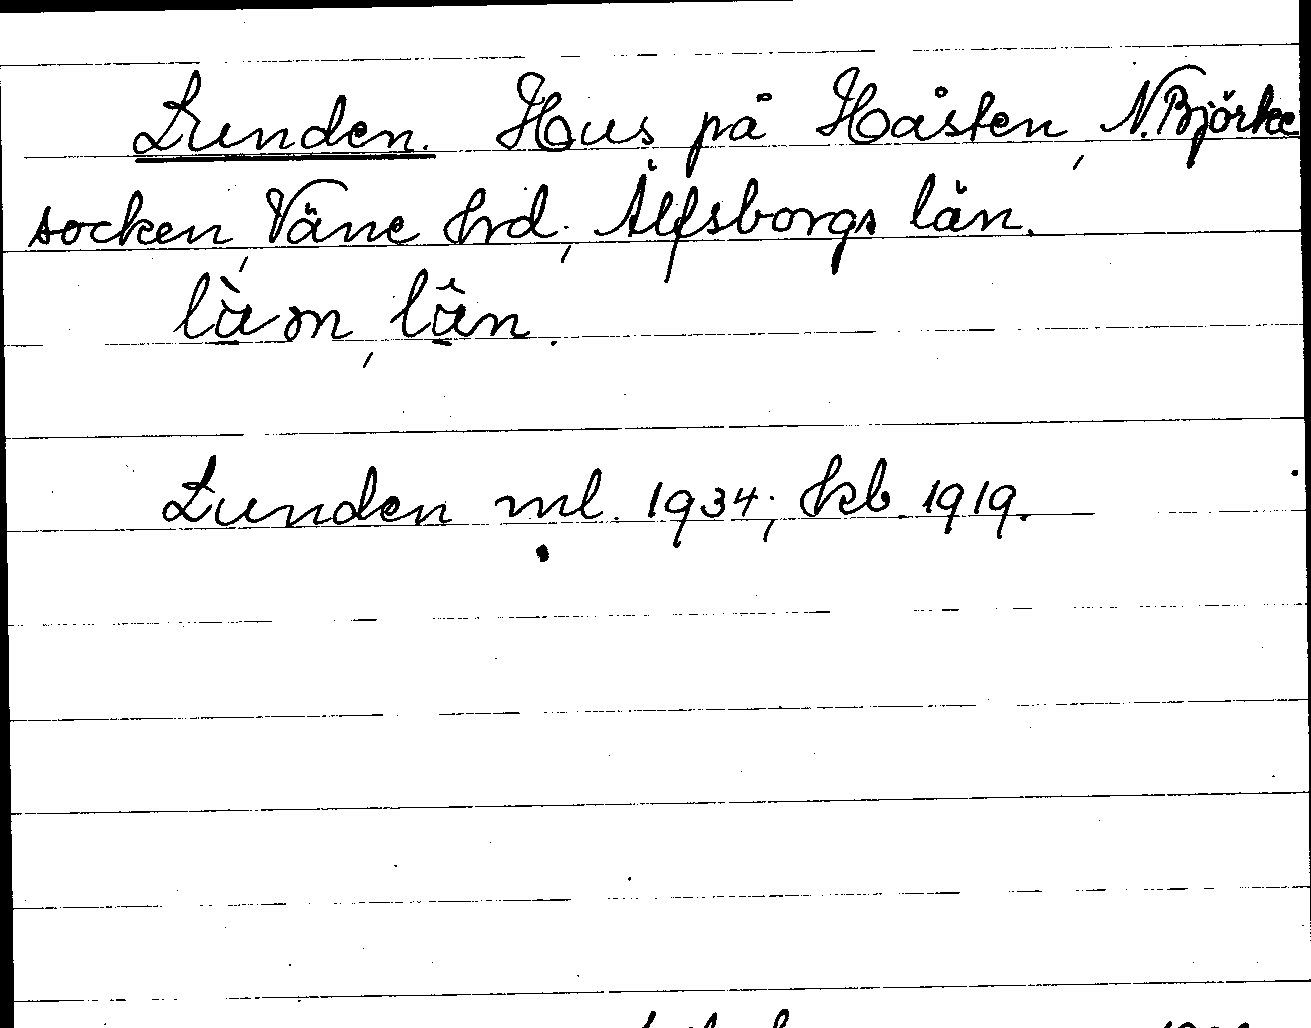 Lunden. Hus på Håsten, N. Björke
socken, Väne hrd; Älfsborgs län.
Lunden ml. 1934; kb. 1919.